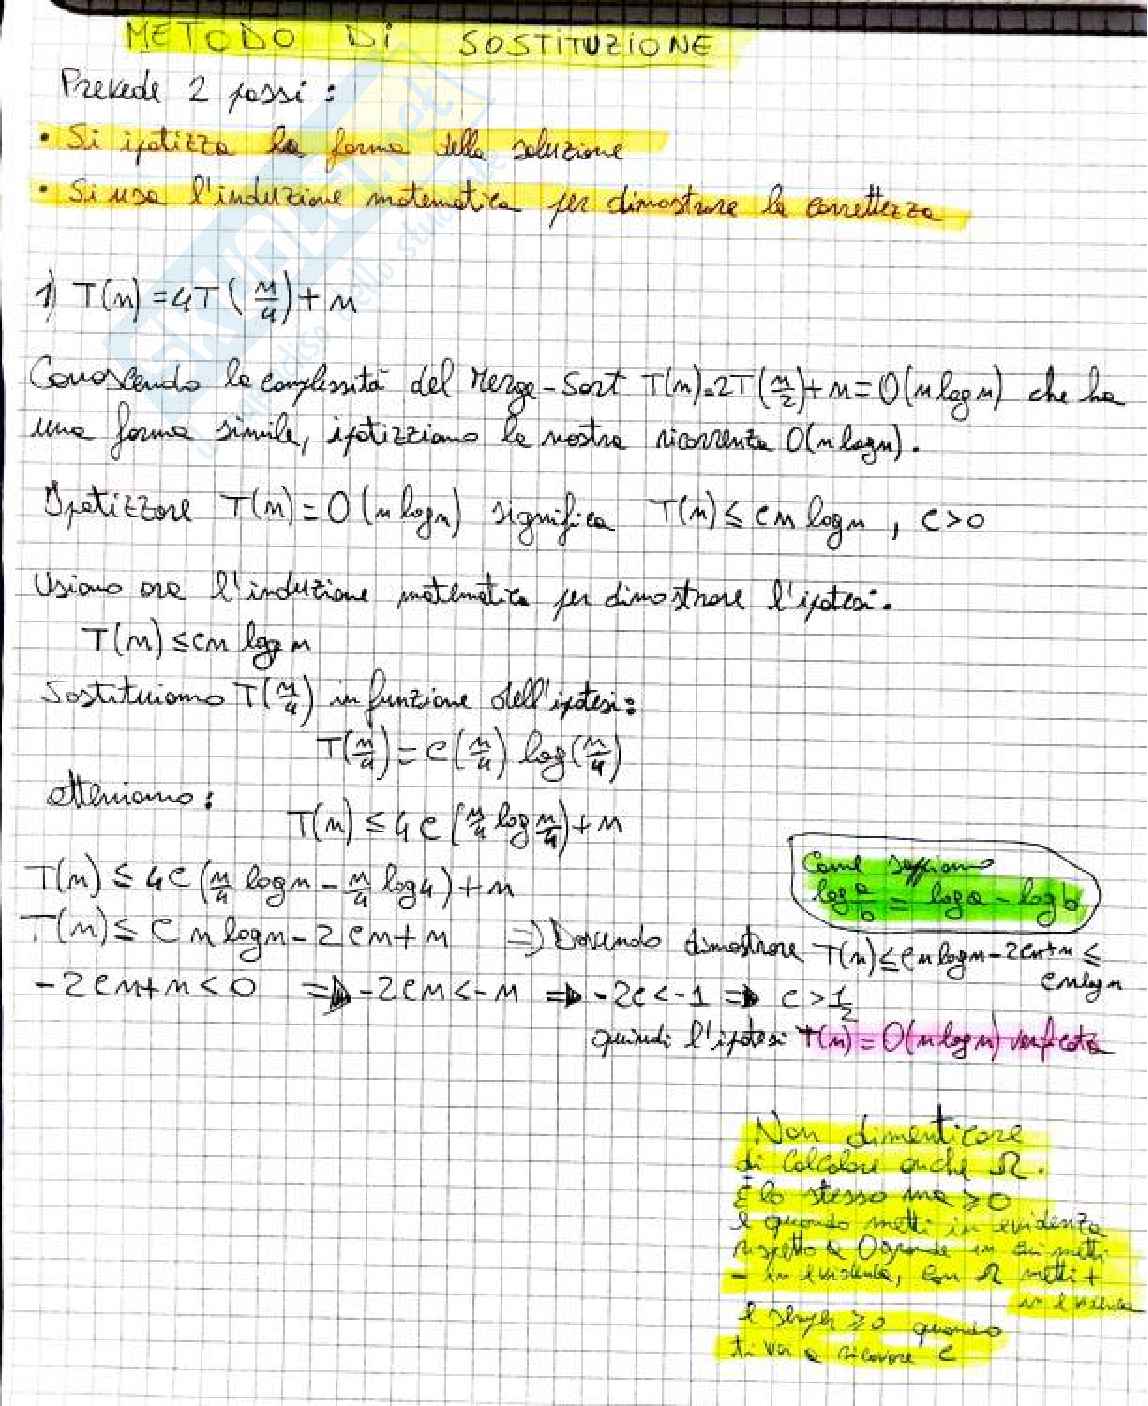 METODO DI SOSTITUZIONE
Prevede 2 passi:
• Si ipotizza la forma della soluzione
• Si usa l'induzione matematica per dimostrare la correttezza
1) T(n)=4T(n/4)+n
Conoscendo la complessità del Merge-Sort T(n)=2T(n/2)+n=O(n log n) che ha
una forma simile, ipotizziamo la nostra ricorrenza O(n log n).
Ipotizzare T(n)=O(n log n) significa T(n)≤cn log n, c>0
Usiamo ora l'induzione matematica per dimostrare l'ipotesi.
T(n)≤cn log n
Sostituiamo T(n/4) in funzione dell'ipotesi:
T(n/4)=c(n/4) log(n/4)
otteniamo:
T(n)≤4c(n/4 log n/4)+n
T(n)≤4c(n/4 log n - n/4 log 4)+n
Come sappiamo
log a/b = log a - log b
T(n)≤c n log n-2cn+n ⇒ Dovendo dimostrare T(n)≤cn log n-2cn+n≤
cn log n
-2cn+n<0 ⇒ -2cn<-n ⇒ -2c<-1 ⇒ c>1/2
quindi l'ipotesi T(n)=O(n log n) verificata
Non dimenticare
di calcolare anche Ω.
È lo stesso ma ≥0
e quando metti in evidenza
rispetto a O grande in cui metti
- in evidenza, con Ω metti +
in evidenza
e ≥0 quando
ti vai a ricavare c